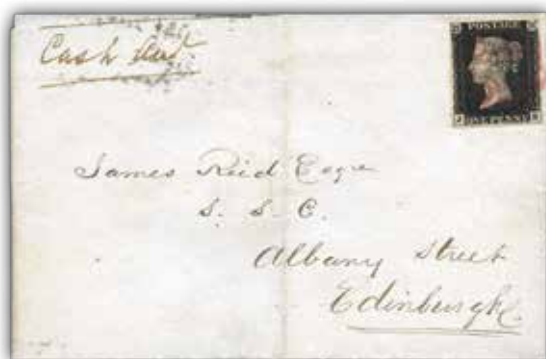 Cash
POSTAGE
ONE PENNY
James Reid Esqre
S. S. C.
Albany Street
Edinburgh